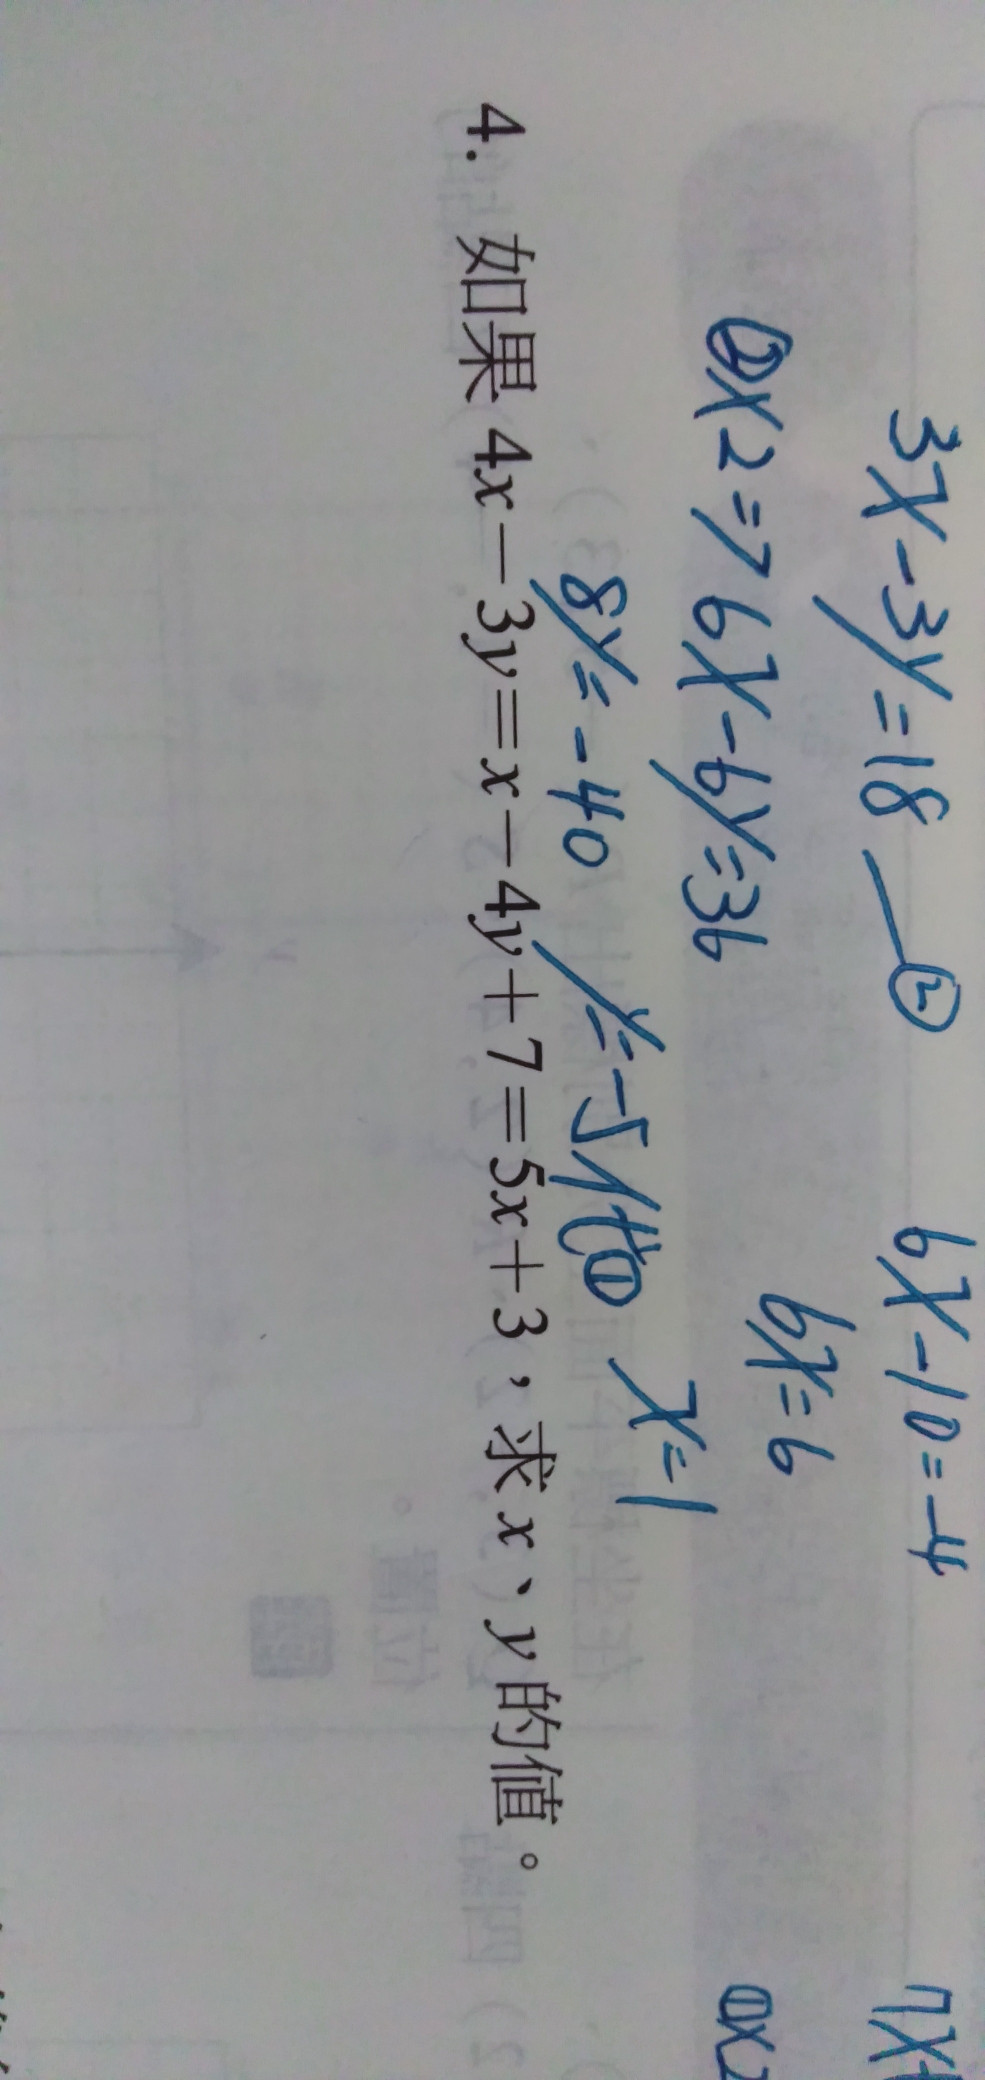 3x-3y=18 — ②
6x-10=-4
7x+
②x2=> 6x-6y=36
6x=6
①x2
8y=-40
y=-5代①
x=1
4. 如果 4x－3y＝x－4y＋7＝5x＋3，求 x、y 的值。